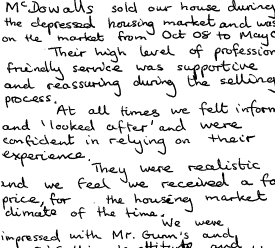 McDowalls sold our house during
the depressed housing market and was
on the market from Oct 08 to May
Their high level of profession
friendly service was supportive
and reassuring during the selling
process.
At all times we felt inform
and 'looked after' and were
confident in relying on their
experience.
They were realistic
and we feel we received a fa
price, for the housing market
climate of the time.
We were
impressed with Mr. Gunn's and